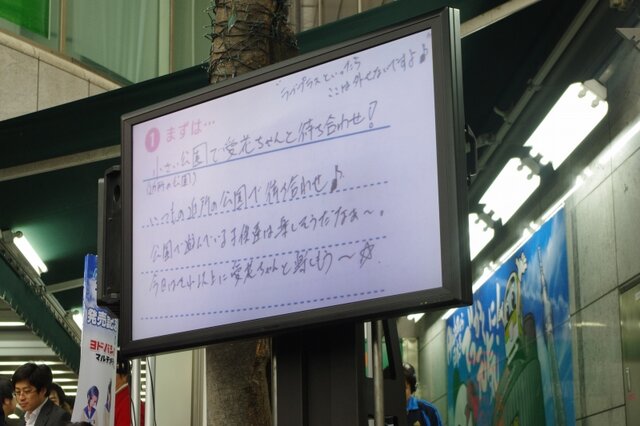 ラブプラスといったら
ここは外せないですよ♪
1 まずは…
小さい公園で愛花ちゃんと待ち合わせ!
(近所の公園)
いつもの近所の公園で待ち合わせ♪
公園で遊んでいます子供達は楽しそうだなぁ〜。
今日はそれ以上に愛花ちゃんと楽しもう〜☆
発売
ヨドバシ
マルチ